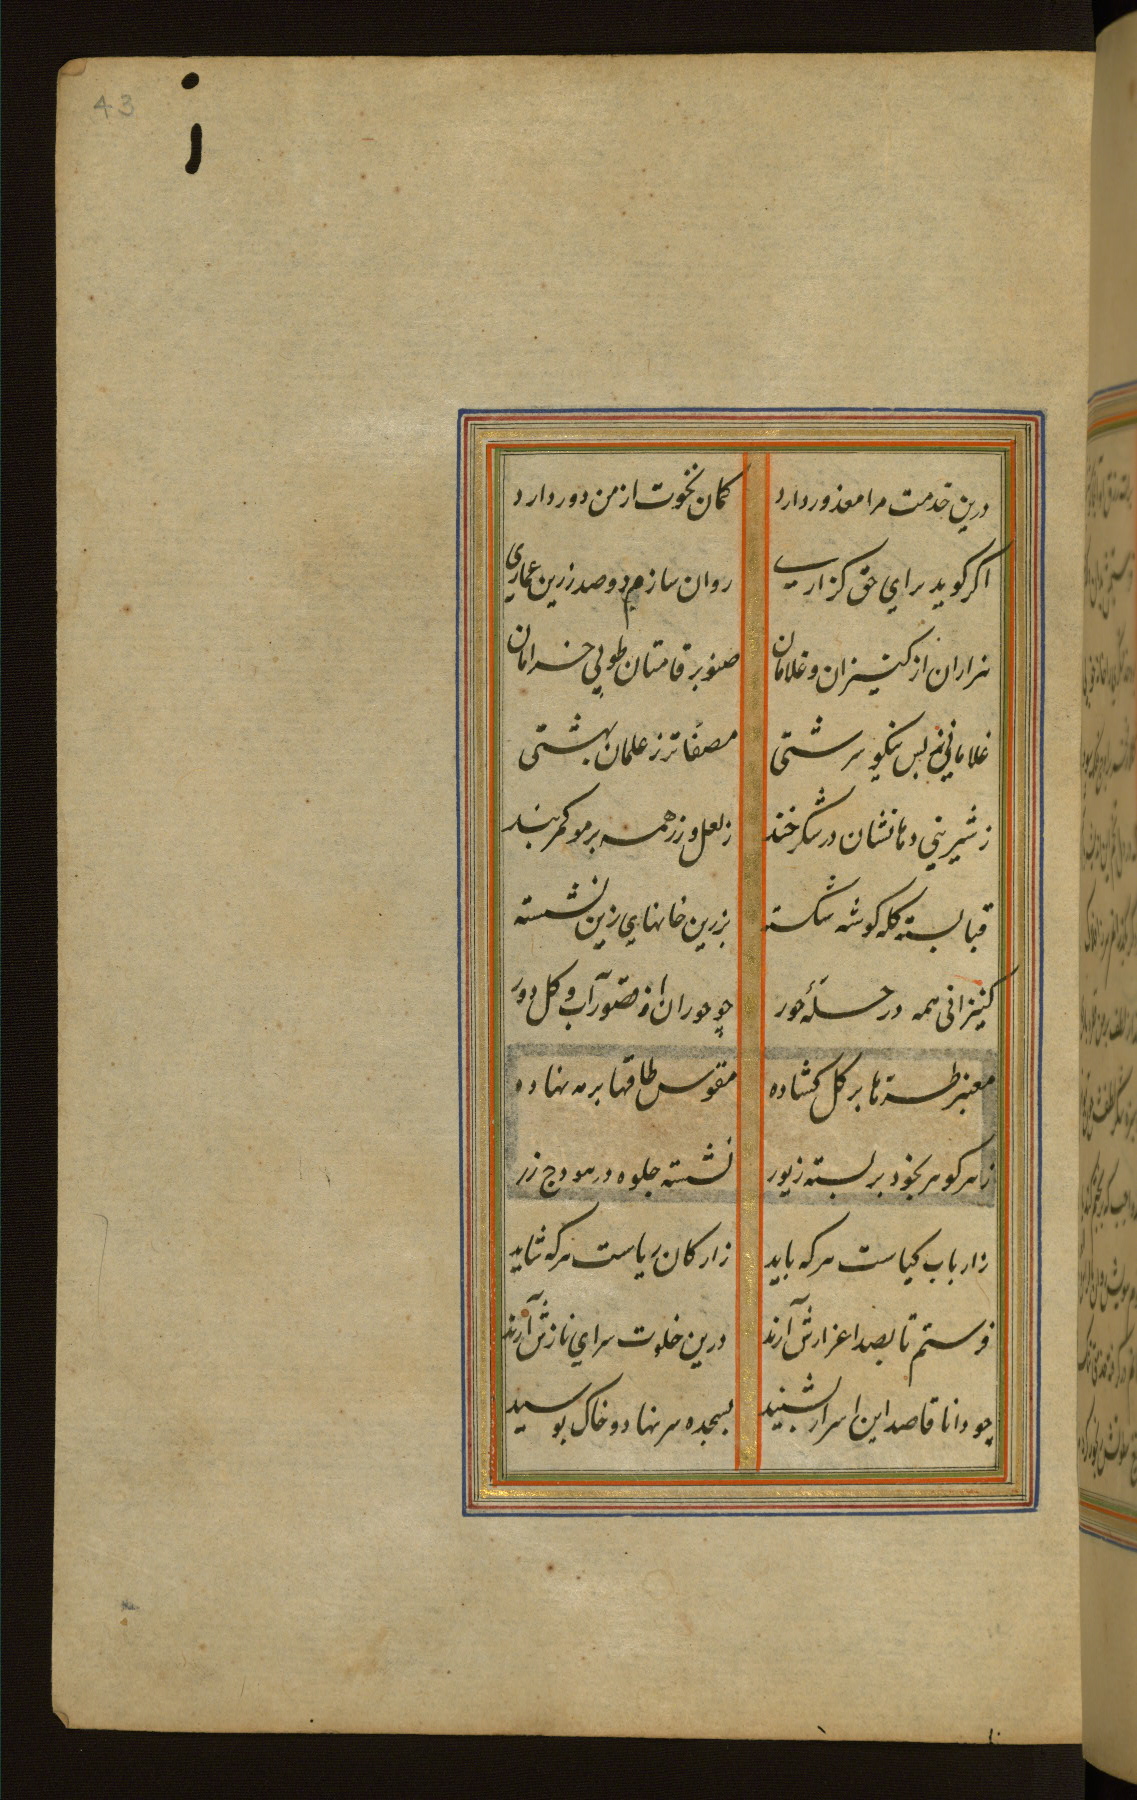 43
درین خدمت مرا معذور دارد
کمان نخوت از من دور دارد
اکر کوید برای حق کزاری
روان سازم دو صد زرین عماری
هزاران از کنیزان و غلامان
صنوبر قامتان طوبی خرامان
غلامانی بس نیکو سرشتی
مصفاتر ز غلمان بهشتی
ز شیرینی دهانشان در شکرخند
ز لعل و زر همه بر مو کمربند
قبا بسته کله کوشه شکسته
بزرین خانهای زین نشسته
کنیزانی همه در حله حور
چو حوران از قصور آب و کل دور
معنبر طره ها بر کل کشاده
مقوس طاقها بر مه نهاده
ز هر کوهر بخود بر بسته زیور
نشسته جلوه در هودج زر
ز ارباب کیاست هر که باید
ز ارکان ریاست هر که شاید
فرستم تا بصد اعزازش آرند
درین خلوت سرای نازش آرند
چو دانا قاصد این اسرار بشنید
بسجده سر نهاد و خاک بوسید